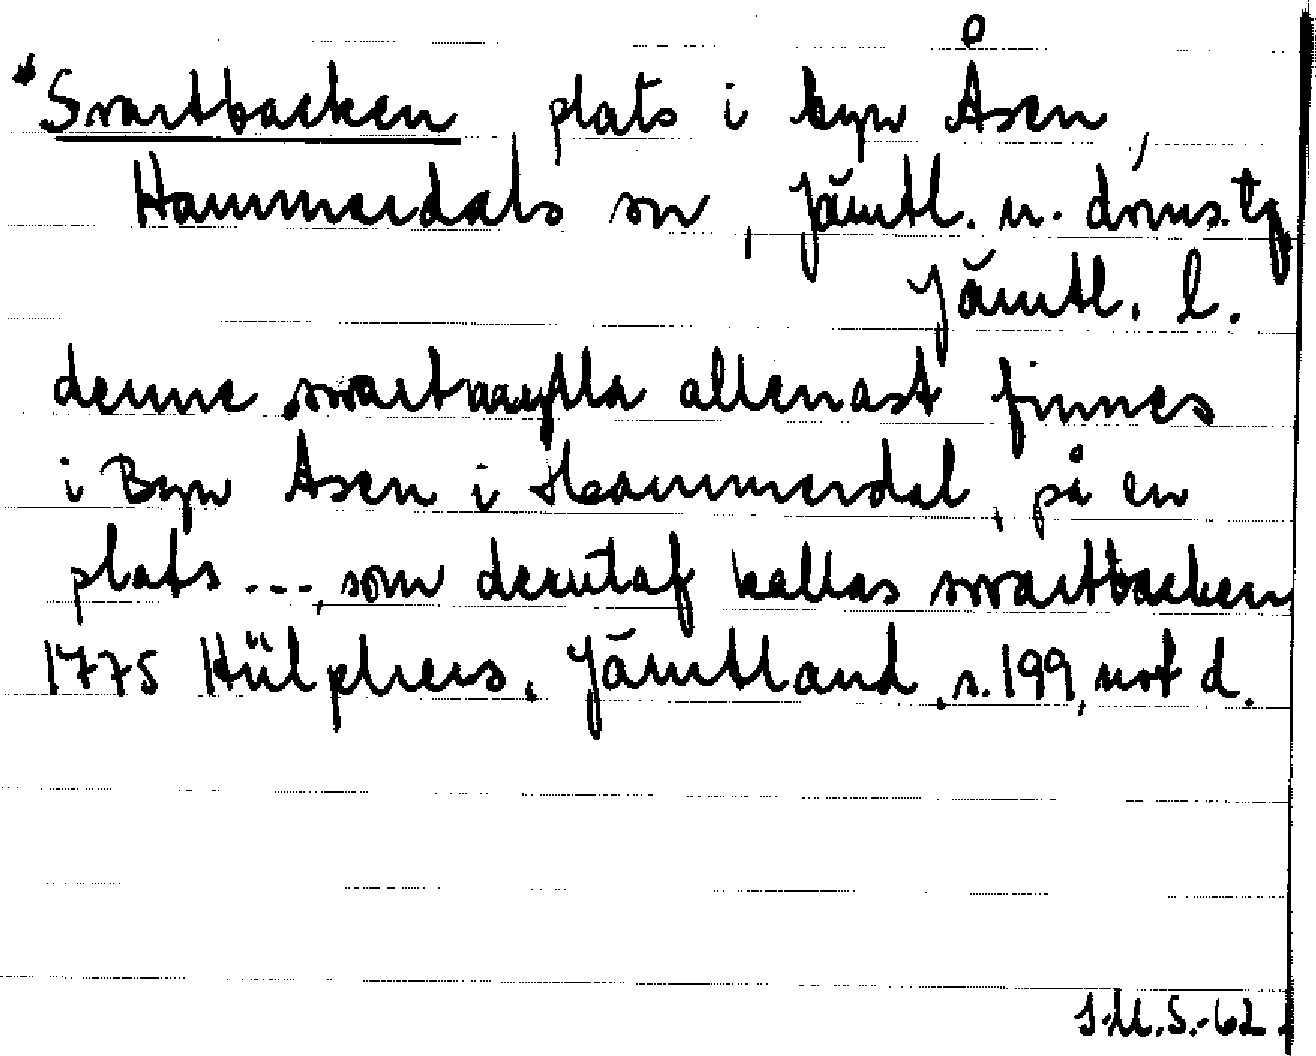 *Svartbacken plats i byn Åsen,
Hammerdals sn, Jämtl. n. doms.tg
Jämtl. l.
denne swart allenast finnes
i Byn Åsen i Hammerdal, på en
plats ..., som derutaf kallas swartbacken
1775 Hülphers. Jämtland, s. 199, not d.
J.M.S.-62.